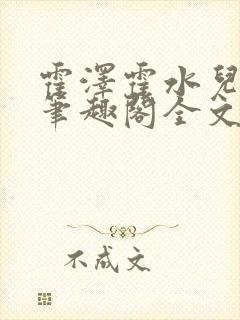 霍澤霍水兒
筆趣閣全文
不成文